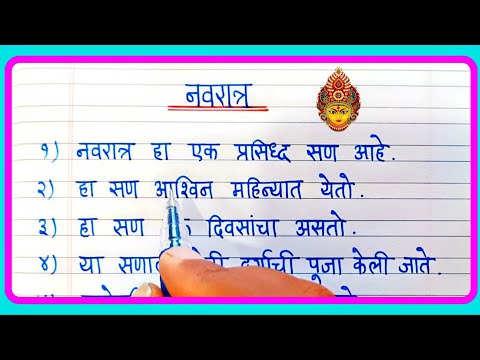 नवरात्र
१) नवरात्र हा एक प्रसिध्द सण आहे.
२) हा सण आश्विन महिन्यात येतो.
३) हा सण दिवसांचा असतो.
४) या पूजा केली जाते.